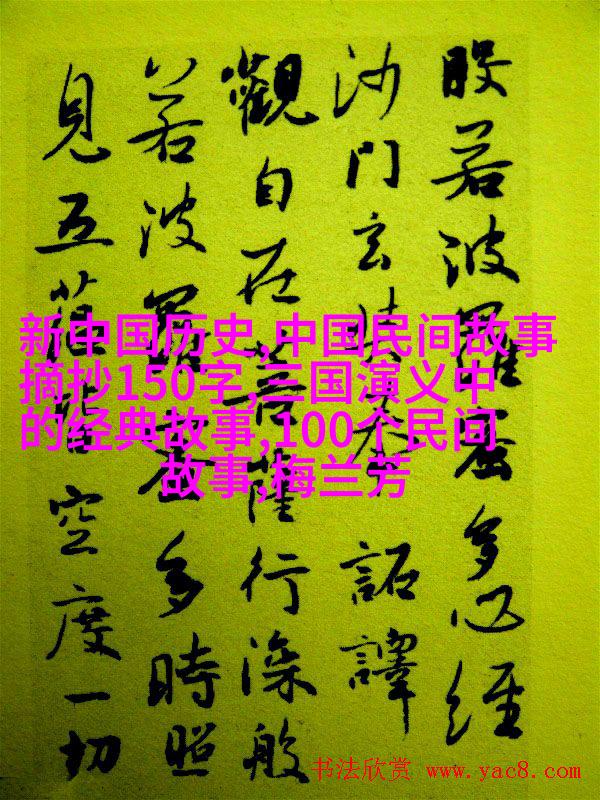 般若波羅蜜多心經
沙門玄奘奉詔譯
觀自在菩薩行深般
若波羅蜜多時照
見五蘊皆空度一切
新中国历史,中国民间故事
摘抄150字,三国演义中
的经典故事,100个民间
故事,梅兰芳
书法欣赏 www.yac8.com